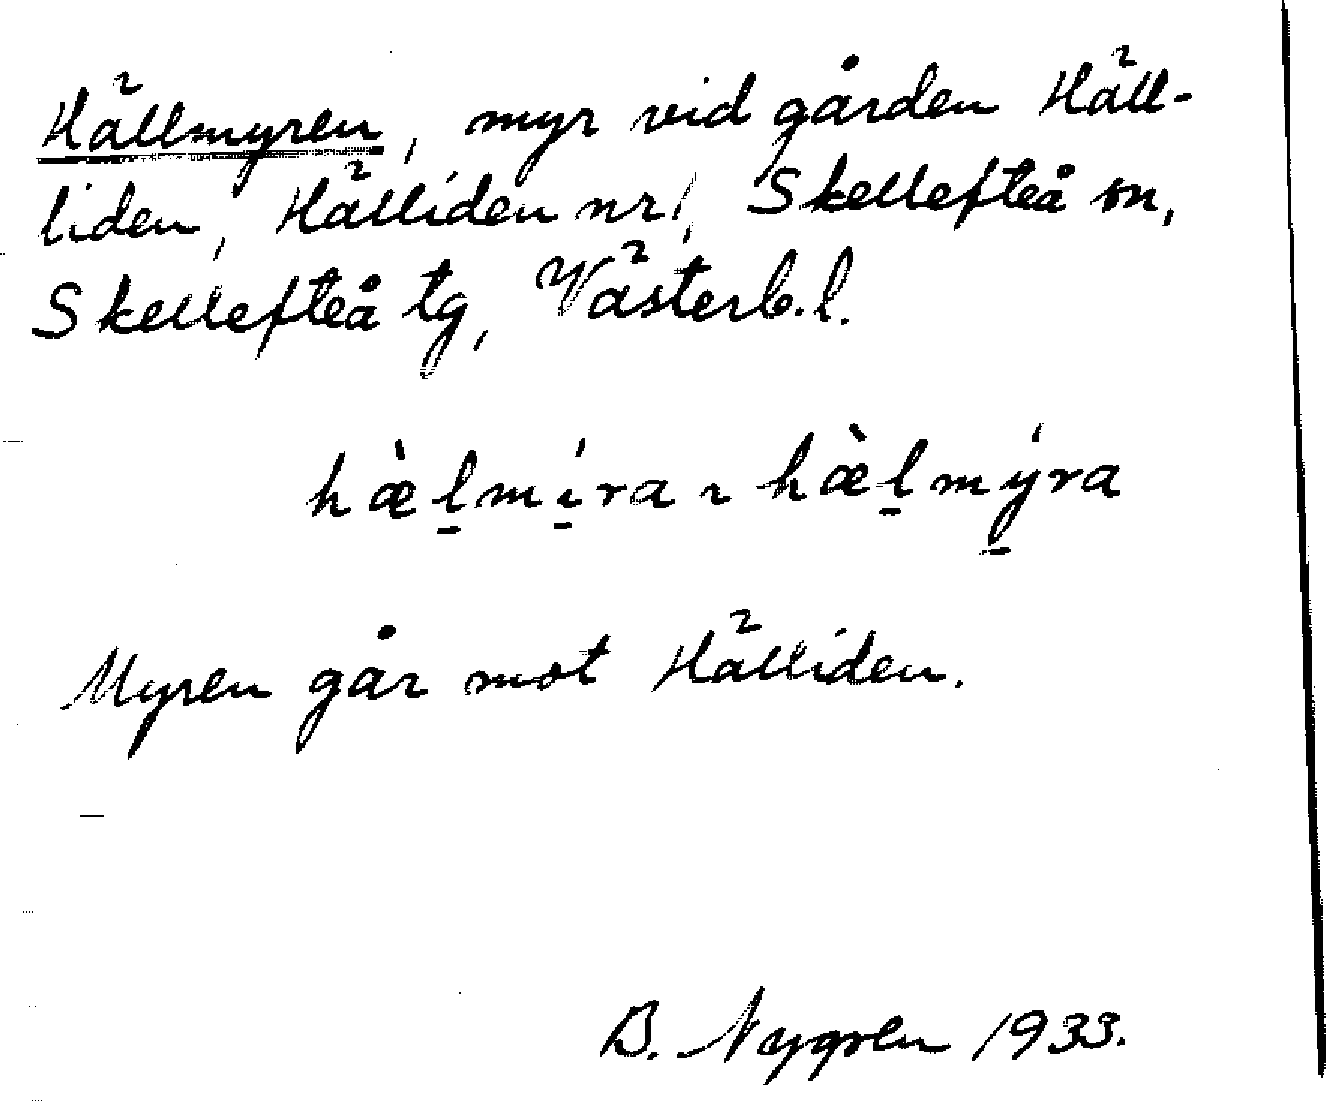 Hällmyren, myr vid gården Häll-
liden, Hälliden nr 1, Skellefteå sn,
Skellefteå tg, Västerb. l.
hæ̀l̠mí̠ra ~ hæ̀l̠mý̠ra
Myren går mot Hälliden.
B. Nygren 1933.